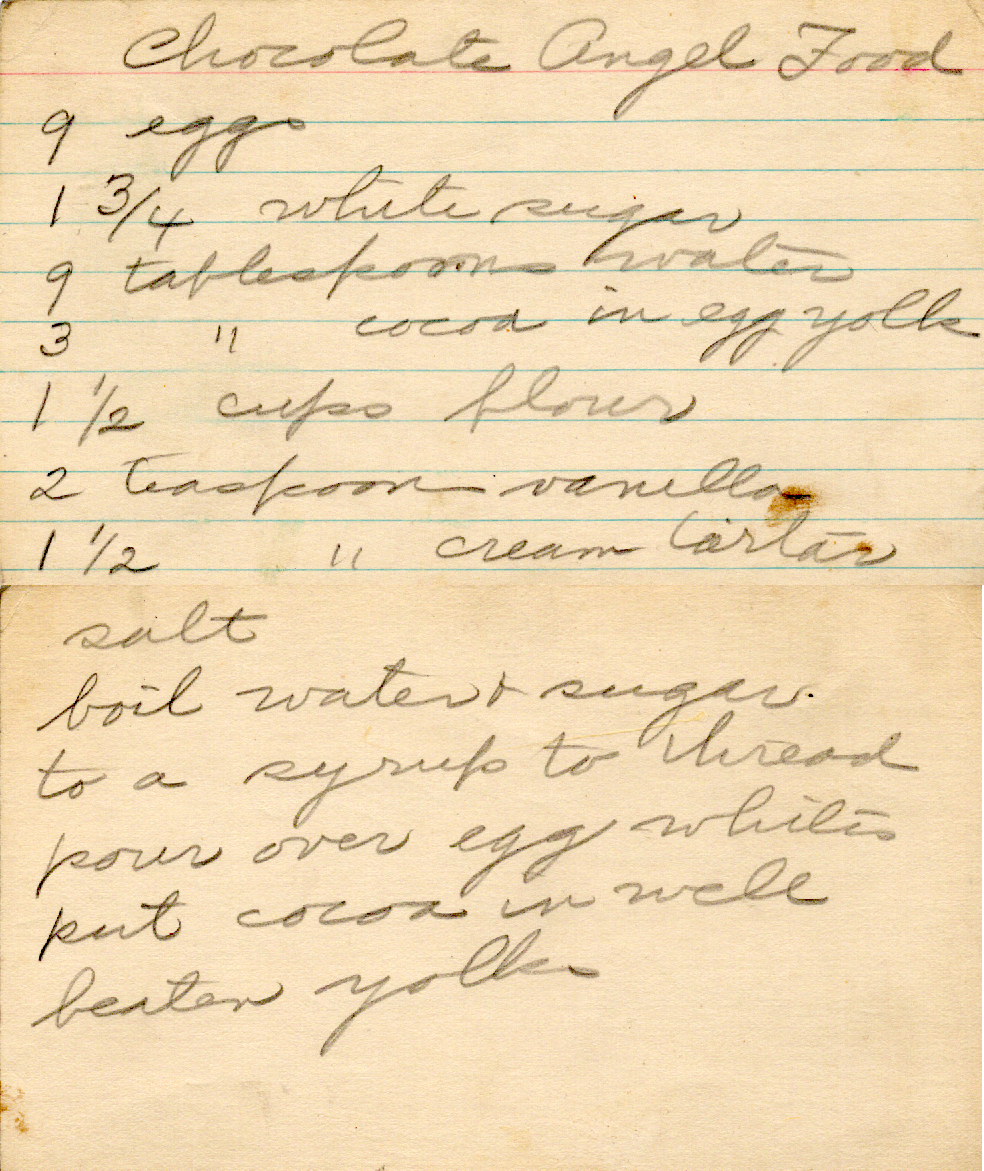 Chocolate Angel Food
9 eggs
1 3/4 white sugar
9 tablespoons water
3 " cocoa in egg yolk
1 1/2 cups flour
2 teaspoon vanilla
1 1/2 " cream tartar
salt
boil water & sugar
to a syrup to thread
pour over egg whites
put cocoa in well
beaten yolks